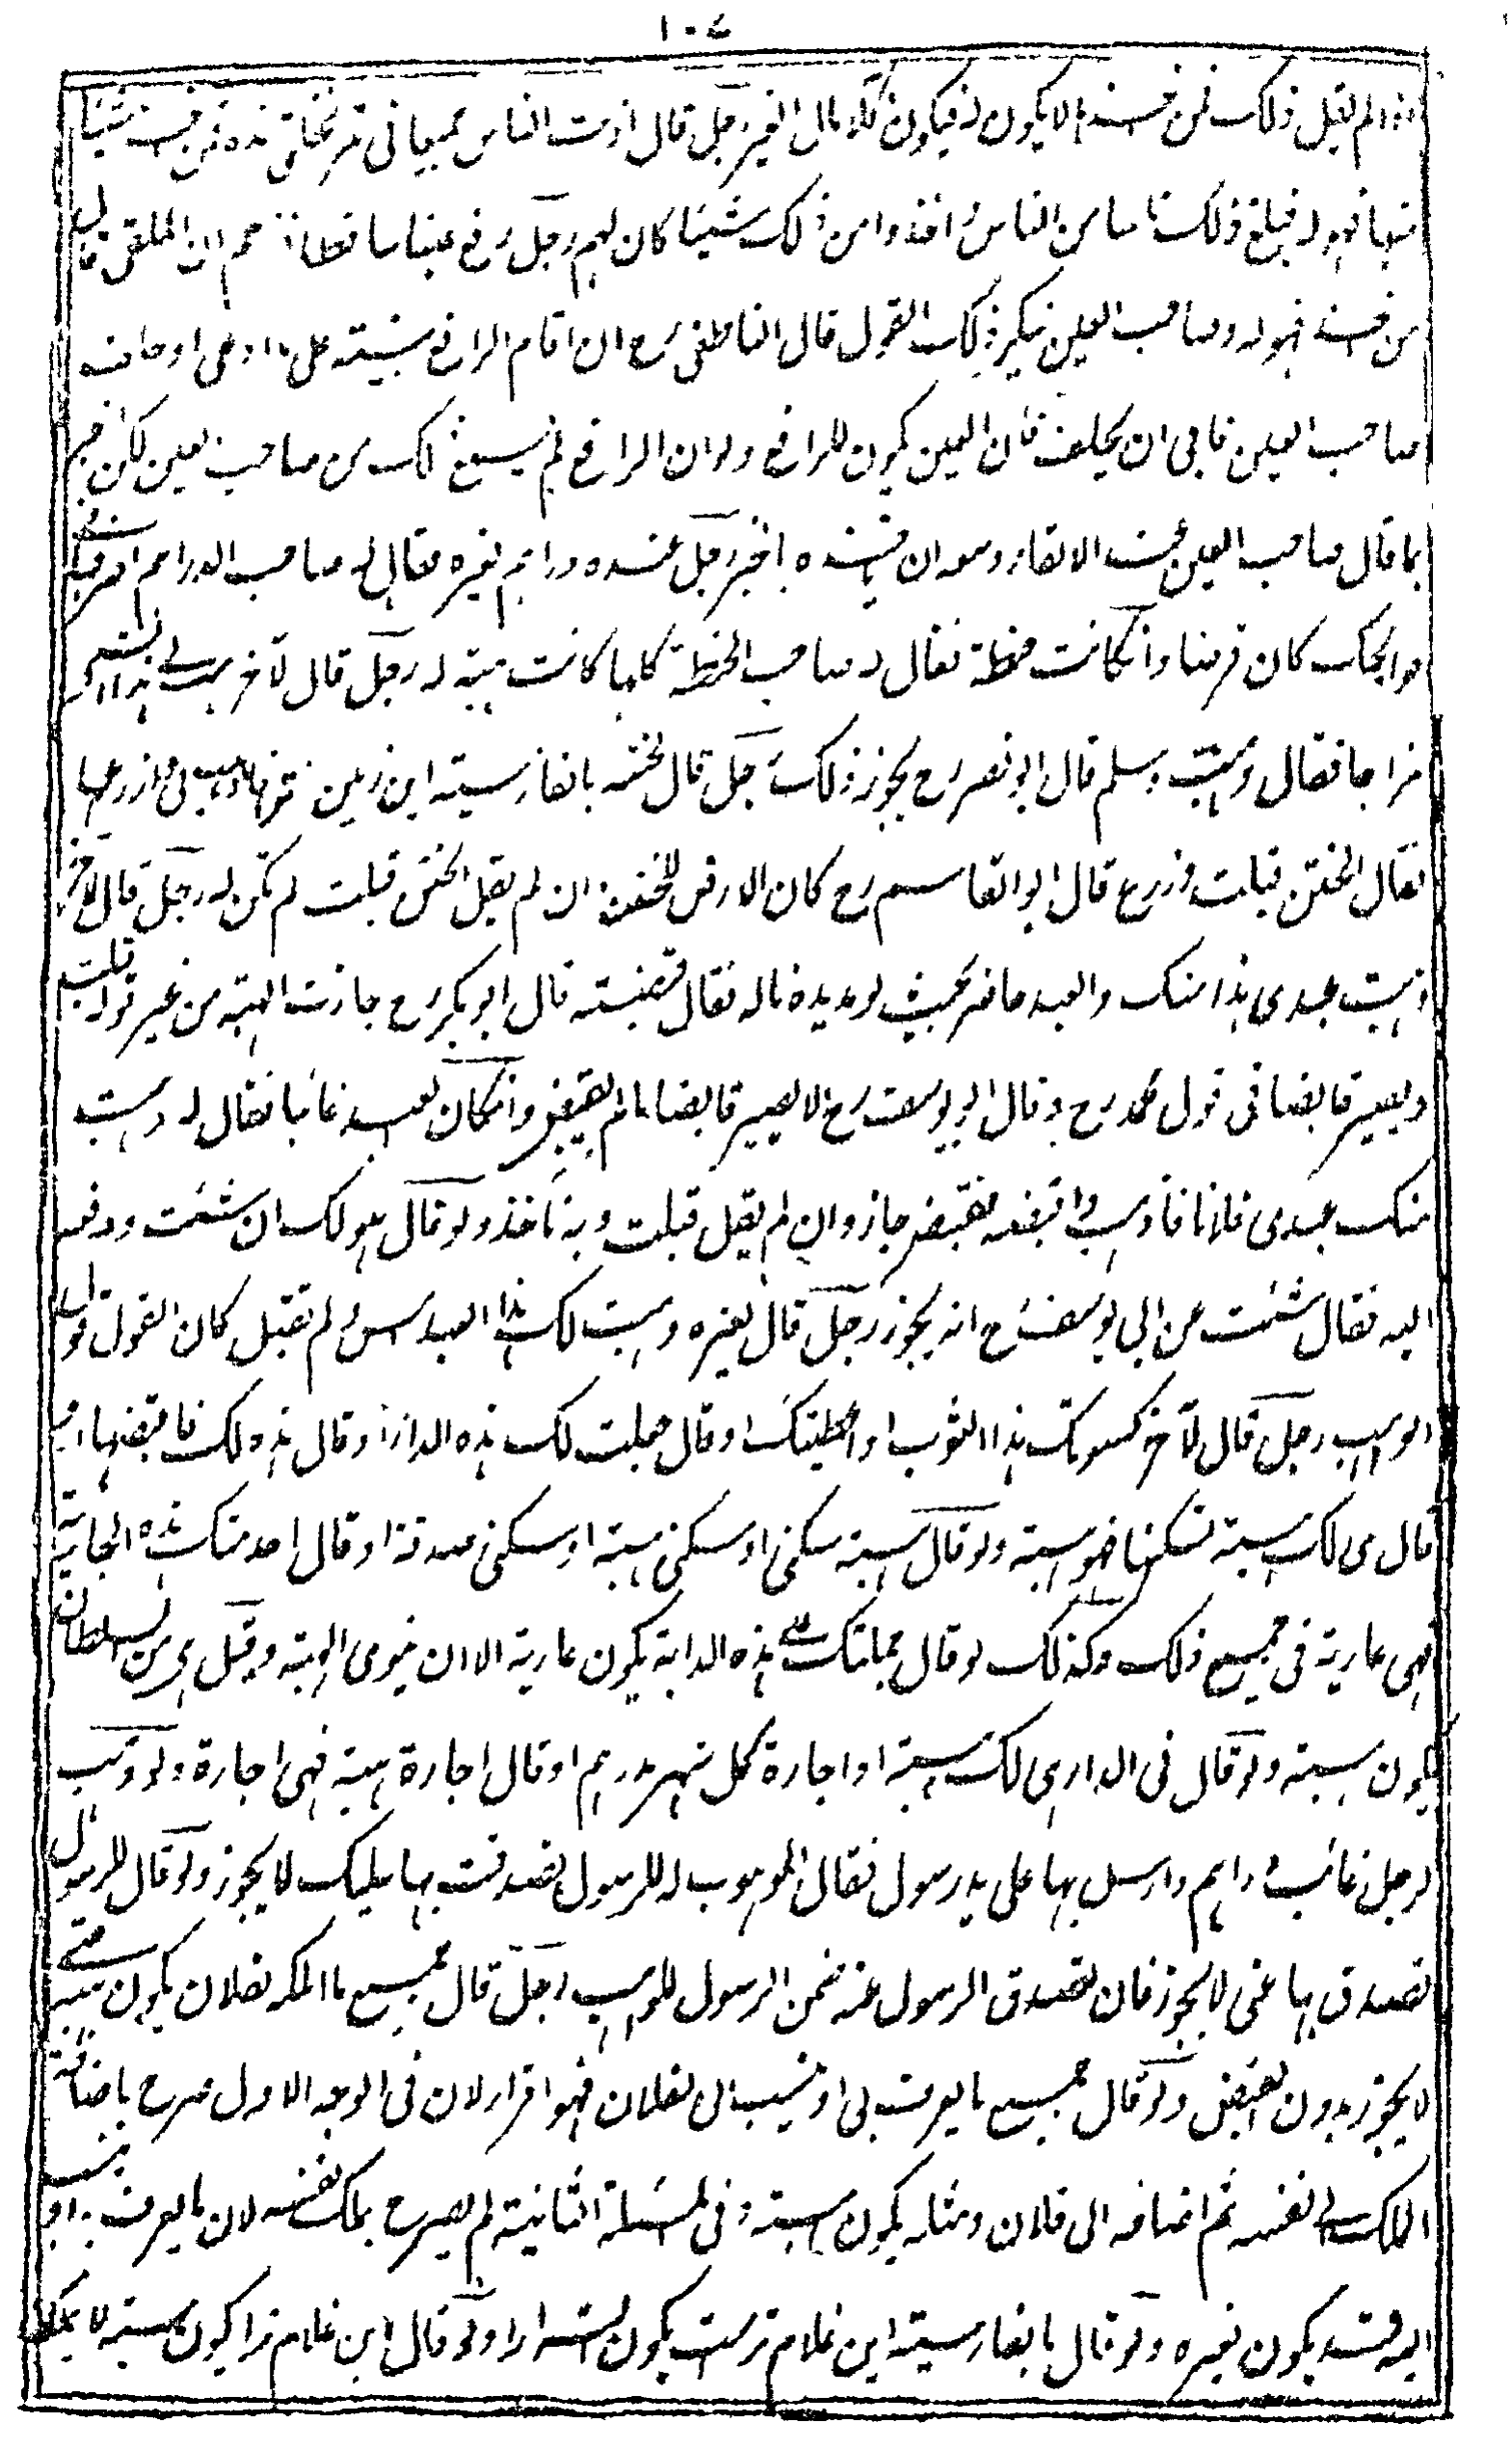 ١٠٤
اذا لم يقل ذلك فمن اخذه لا يكون له فيكون آكلا مال الغير رجل قال اذنت الناس جميعا في ثمر نخلي هذه فمن اخذ شيئا
منها فهو له فبلغ ذلك ناسا من الناس و اخذوا من ذلك شيئا كان لهم رجل رفع عينا ساقطا زعم ان الملقي قال
من اخذه فهو له وصاحب العين ينكر ذلك القول قال الناطفي رح ان اقام الرافع بينته على ما ادعى او حلف
صاحب العين فابى ان يحلف فان العين يكون للرافع ولو ان الرافع لم يسمع ذلك من صاحب العين لكن اخبر
بما قال صاحب العين عند الالقاء وسعه ان ياخذه باخبر رجل عنده دراهم لغيره فقال له صاحب الدراهم اصرفها في
حوائجك كان قرضا وانكانت حنطة فقال له صاحب الحنطة كلها كانت هبة له رجل قال لآخر هب لي هذا الشيء
مزاحا فقال وهبت وسلم قال ابو نصر رح يجوز ذلك رجل قال لختنه بالفارسية اين زمين تراست فاذهب فازرعها
فقال الختن قبلت وزرع قال ابو القاسم رح كان الارض للختن وان لم يقل الختن قبلت لم تكن له رجل قال لآخر
وهبت عبدي هذا منك والعبد حاضر بحيث لو مد يده ناله فقال قبضته قال ابو بكر رح جازت الهبة من غير قوله قبلت
ويصير قابضا في قول محمد رح وقال ابو يوسف رح لا يصير قابضا مالم يقبض وانكان العبد غائبا فقال له وهبت
منك عبدي فلانا فاذهب واقبضه فقبضه جاز وان لم يقل قبلت وبه ناخذ ولو قال هو لك ان شئت ودفعه
اليه فقال شئت عن ابي يوسف رح انه يجوز رجل قال لغيره وهبت لك هذا العبد امس ولم تقبل كان القول قول
الواهب رجل قال لآخر كسوتك هذا الثوب او اعطيتك او قال جعلت لك هذه الدار او قال هذه لك فاقبضها او
قال هي لك هبة تسكنها فهو هبة ولو قال هبة سكنى او سكنى هبة او سكنى صدقة او قال اخدمتك هذه الجارية
فهي عارية في جميع ذلك وكذلك لو قال حملتك على هذه الدابة يكون عارية الا ان ينوي الهبة وقيل هي من السلطان
يكون هبة ولو قال في الدار هي لك هبة او اجارة كل شهر بدرهم او قال اجارة هبة فهي اجارة ولو وهب
لرجل غائب دراهم وارسل بها على يد رسول فقال الموهوب له للرسول تصدقت بها عليك لا يجوز ولو قال للرسول
تصدق بها عني لا يجوز فان تصدق الرسول عنه ضمن الرسول للواهب رجل قال جميع ما املكه لفلان يكون هبة حتى
لا يجوز بدون القبض ولو قال جميع ما يعرف بي او ينسب الي لفلان فهو اقرار لان في الوجه الاول صرح باضافة
الملك الى نفسه ثم اضافه الى فلان ومثله يكون هبة وفي المسئلة الثانية لم يصرح بملك نفسه لان ما يعرف به او ينسب
اليه قد يكون لغيره ولو قال بالفارسية اين غلام تراست يكون اقرارا ولو قال اين غلام ترا يكون هبة لا يملك